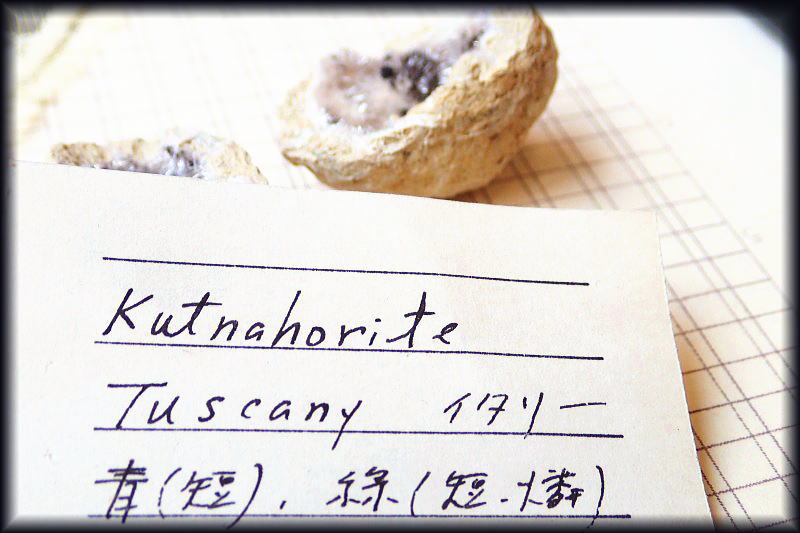 Kutnahorite
Tuscany イタリー
青(短). 緑(短.燐)